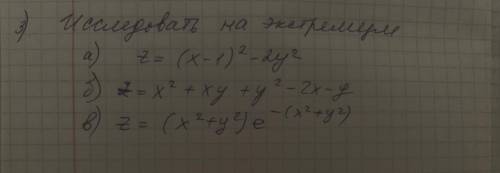 3) Исследовать на экстремум
а) z = (x-1)² - 2y²
б) z = x² + xy + y² - 2x - y
в) z = (x² + y²) e^{-(x² + y²)}